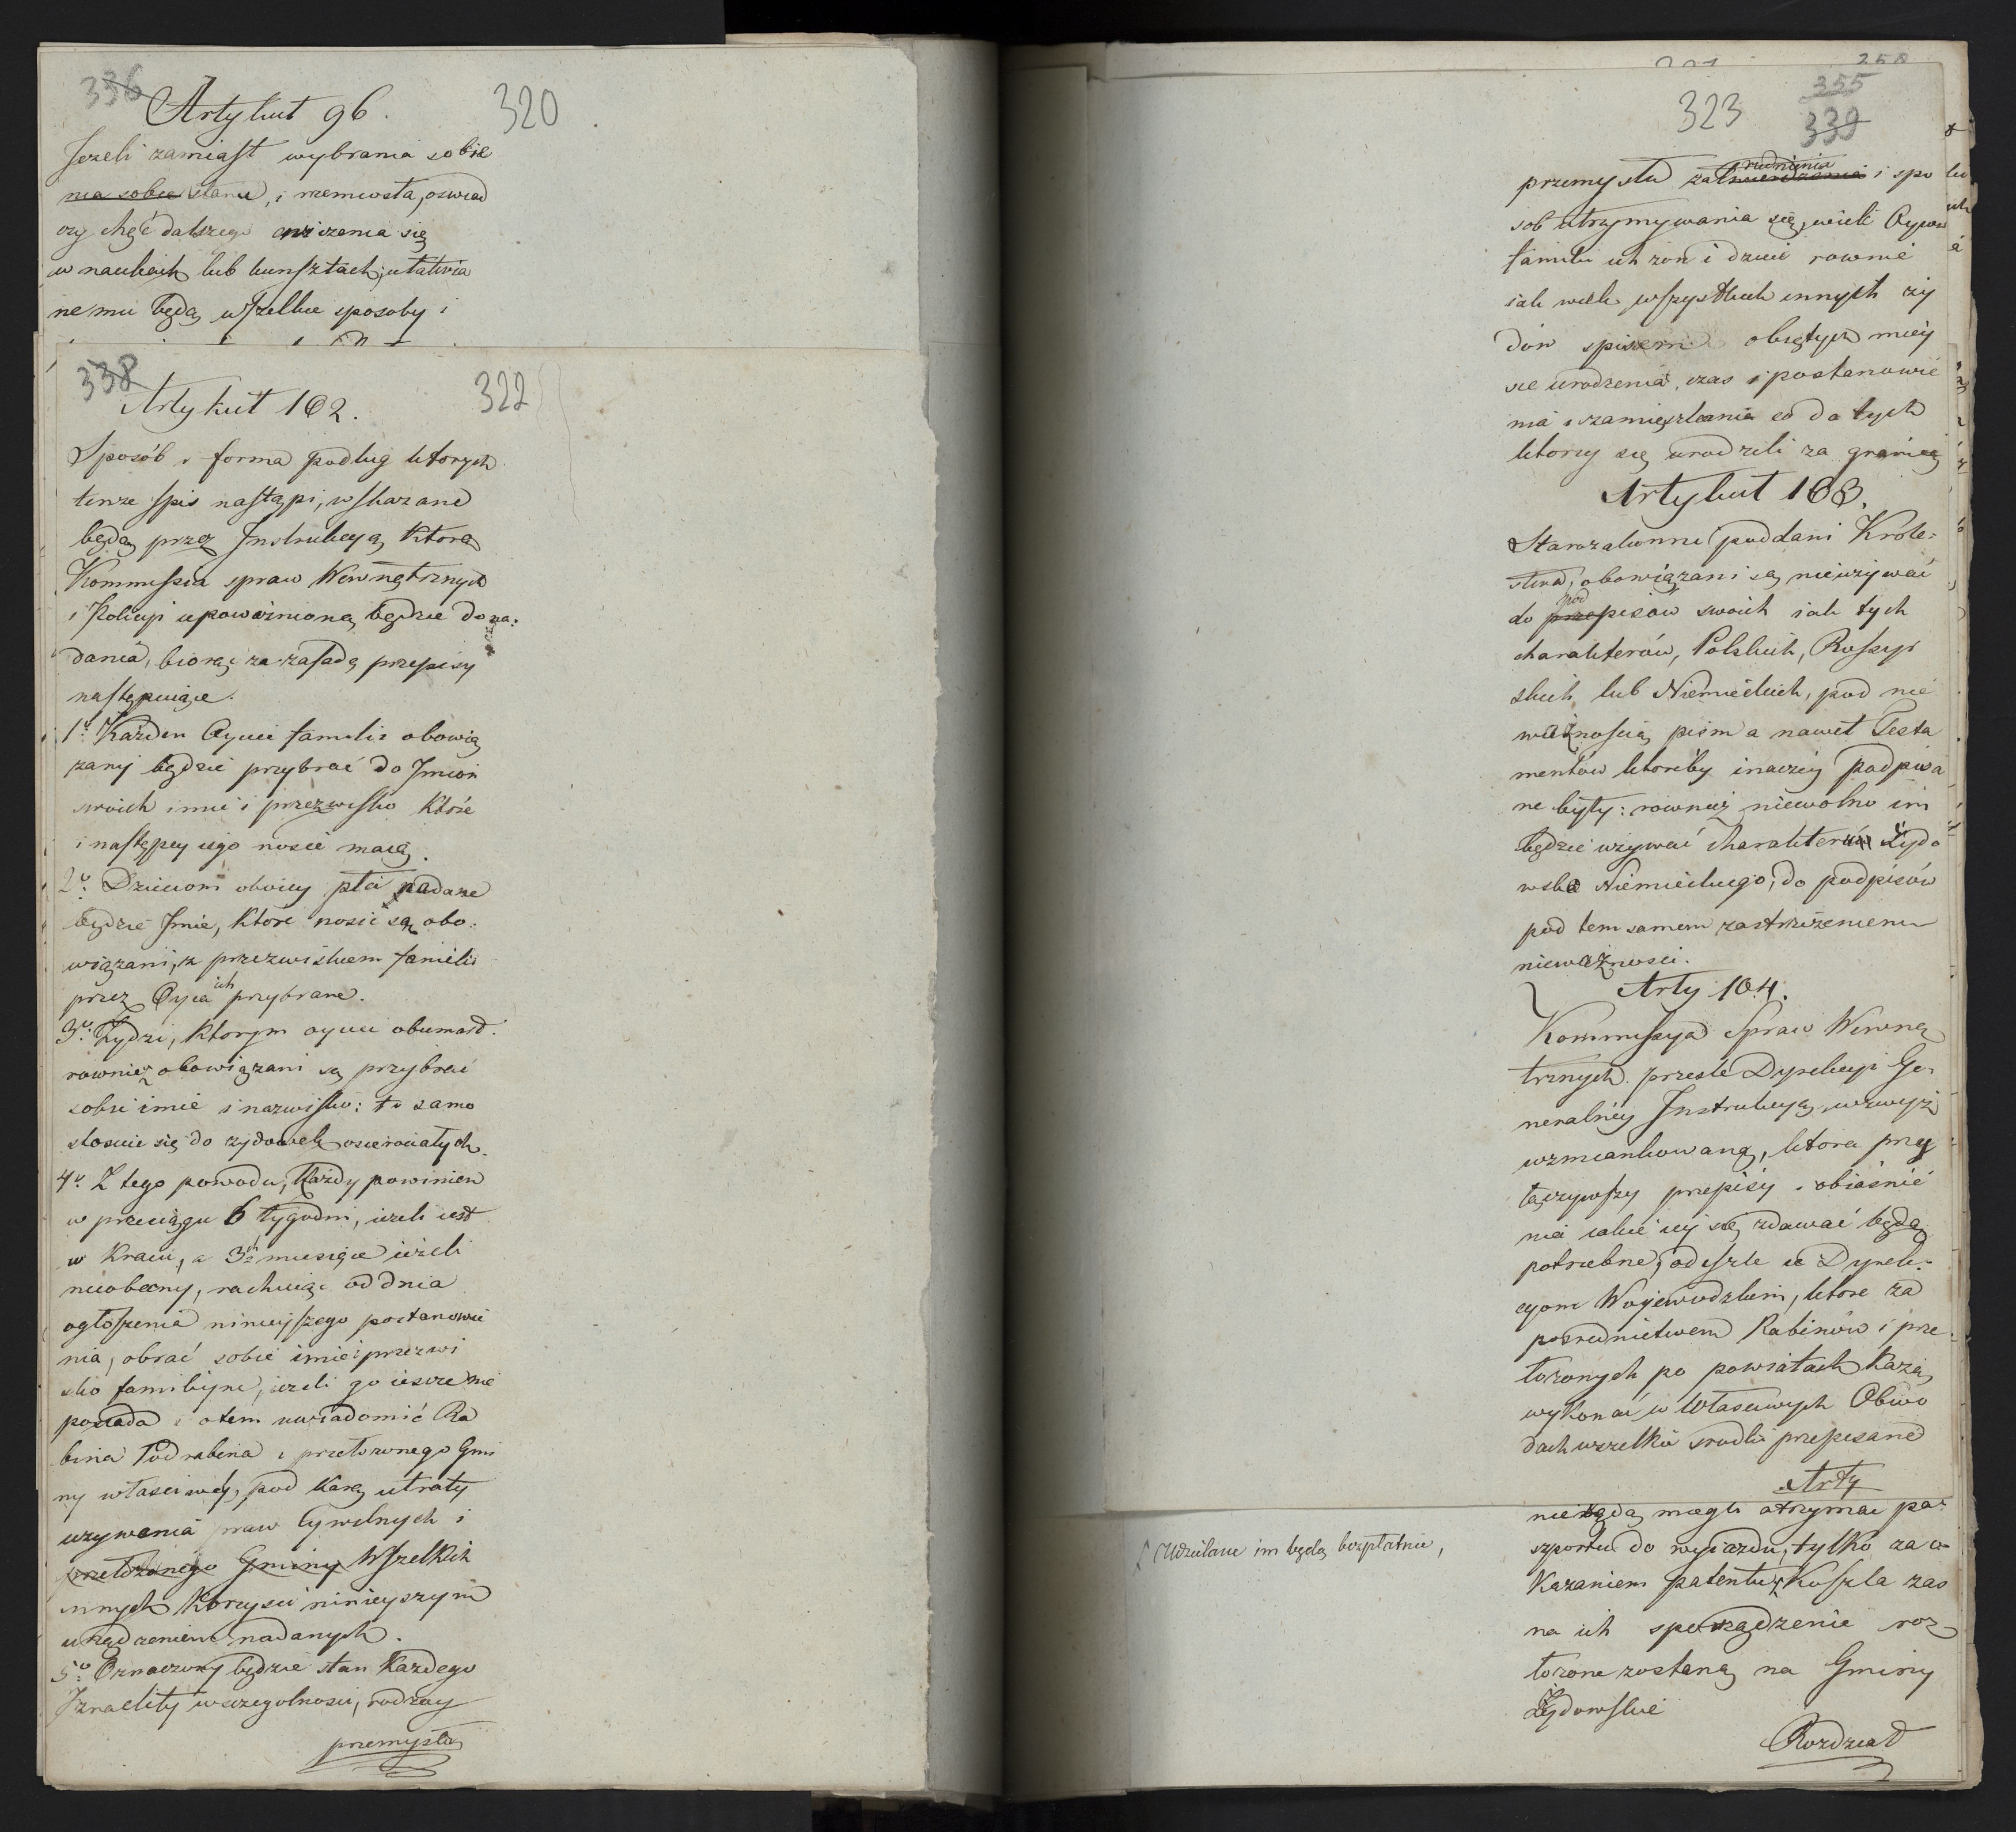 336
Artykuł 96.
320
Jezeli zamiast wybrania sobie
nia sobie stanu, i rzemiosła, oswiad
czy chęć dalszego cwiczenia się
w naukach lub kunsztach, ułatwia
ne mu będą wszelkie sposoby i
338
Artykuł 102.
322
Sposób i forma podług ktorych
tenze spis nastąpi, wskazane
będą przez Instrukcyą którą
Kommissia spraw Wewnętrznych
i Policyi upoważnioną będzie do na:
dania, biorąc za zasadę przepisy
następuiące.
1o. Każden Oyciec familii obowią
zany będzie przybrać do Jmion
swoich imie i przezwisko które
i następcy iego nosić maią.
2o. Dzieciom oboiey płci nadane
będzie Jmie, które nosić są obo:
wiązani, z przezwiskiem familii
przez Oyca ich przybrane.
3o. Żydzi, ktorym oycowie obumarł.
rownież obowiązani są przybrać
sobie imie i nazwisko: to samo
stosuie się do zydowek osierociałych.
4o Z tego powodu, każdy powinien
w przeciągu 6 tygodni, ieżeli iest
w Kraiu, a 3ch miesiące ieżeli
nieobecny, rachuiąc od dnia
ogłoszenia ninieyszego postanowie
nia, obrać sobie imie i przezwi
sko familiyne, ieżeli go ieszcze nie
posiada i o tem uwiadomić Ra
bina Podrabina i przełożonego Gmi
ny własciwey, pod karą utraty
uzywania praw Cywilnych i
przełożonego Gminy Wszelkich
innych Korzysci ninieyszym
urządzeniem nadanych.
5o Oznaczony będzie stan Kazdego
Izraelity w szczegolnosci, rodzay
przemysłu
258
355
323
339
rudnienia
przemysłu zatwierdzenia i spo
sob utrzymywania się, wiek Oyców
familii ich żon i dzieci rownie
iak wiek wszystkich innych ży
dów spisem obiętych miey
sce urodzenia, czas i postanowie
nia i zamięszkania co do tych
ktorzy się urodzili za granicą
Artykuł 103.
Starozakonni poddani Krole:
stwa, obowiązani są nieużywać
pod
do przepisów swoich iak tych
charakterów, Polskich, Rossyi
skich lub Niemieckich, pod nie
ważnością pism a nawet Testa
mentow ktoreby inaczey podpisa
ne były: rownież niewolno im
będzie używać charakterów Żydo
wsko Niemieckiego, do podpisów
pod tem samem zastrzeżeniem
nieważnosci.
Arty 104.
Kommissya Spraw Wewnę
trznych przesle Dyrekcyi Ge-
neralnéy Instrukcyą wzwyż
wzmiankowaną, ktora przy
łączywszy przepisy i obiaśnie
nia iakie iey się zdawać będą
potrzebne, odeszle ie Dyrek:
cyom Woyewodzkim, ktore za
posrednictwem Rabinów i prze
łożonych po powiatach każą
wykonać w własciwych Obwo
dach wszelkie srodki przepisane
Arty
nie będą mogli otrzymać pa:
szportu do wyiazdu, tylko za o-
kazaniem patentu, Koszta zas
na ich sporządzenie roz
łożone zostaną na Gminy
Żydowskie
Udzielane im będą bezpłatnie,
Rozdział